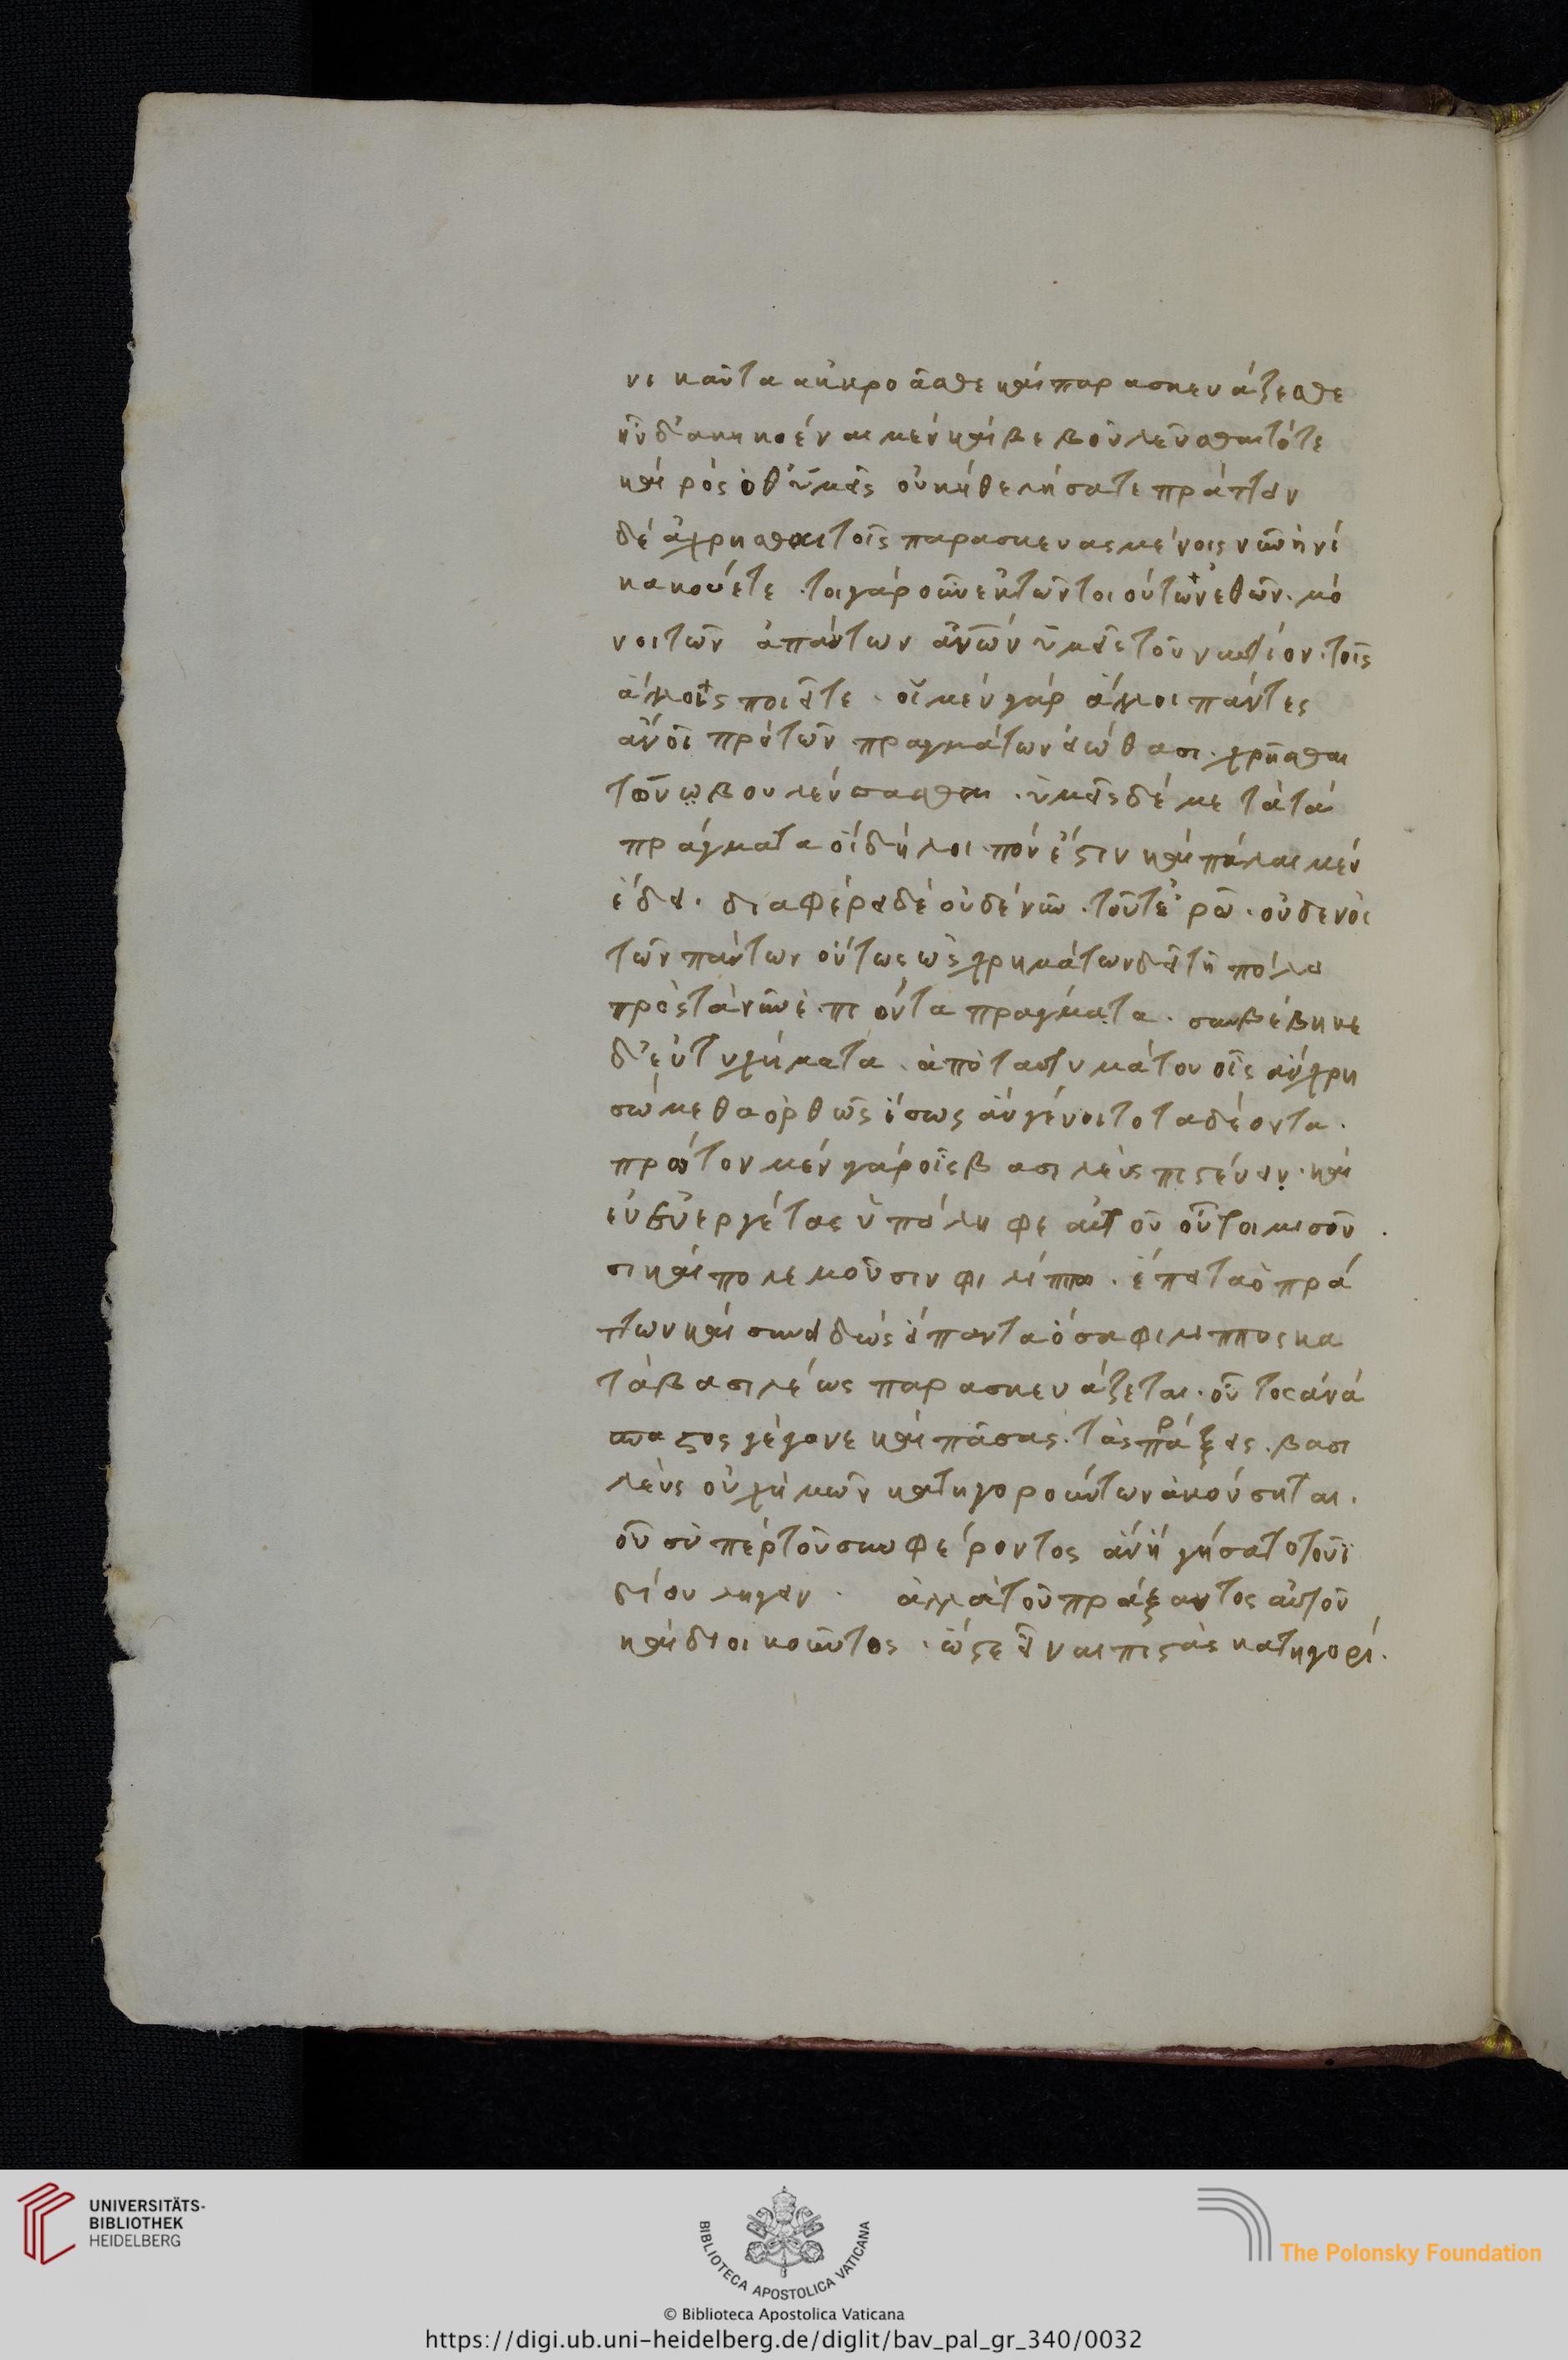 νι καῦτα ἀκκροᾶσθε καὶ παρασκευάζεσθε
ἦν δ' ἀκηκοέναι μὲν καὶ βεβουλεῦσθαι τότε
καὶ ρός ὁθ' ὑμεῖς οὐκ ἠθελήσατε πράττειν
δέ ἀχρησθαι τοῖς παρασκευασμένοις νῦν ἡνί
κακούετε · τοιγάρουν ἐκ τῶν τοιούτων ἐθῶν · μό
νοι τῶν ἁπάντων ἀνῶν ὑμεῖς τοὐναντίον · τοῖς
ἄλλοις ποιεῖτε · οἱ μὲν γάρ ἄλλοι πάντες
ἄνοι πρὸ τῶν πραγμάτων εἰώθασι · χρῆσθαι
τοῦ ω βουλεύσασθαι · ὑμεῖς δέ με τὰ τά
πράγματα οἱ δή λοι πόν ἐστιν καὶ πάλαι μέν
ἔδει · διαφέρει δέ οὐδέ νῦν · τοῦτ' ἐρῶ · οὐδενὸς
τῶν πάντων οὕτως ὡς χρημάτων δεῖ τῇ πόλει
πρὸς τὰ νῦν ἐπιόντα πράγματα · συμβέβηκε
δ' εὐτυχήματα · ἀπὸ ταυτυμάτου οἷς ἄν χρη
σώμεθα ὀρθῶς ἴσως ἄν γένοιτο τα δέοντα ·
πρῶτον μὲν γάρ οἷς βασιλεὺς πιστεύειν · καὶ
εὐεργέτας ὑπείληφε αὑτοῦ οὗτοι μισοῦ
σι καὶ πολεμοῦσιν φιλίππω · ἔπειτα ὁ πρά
ττων καὶ συνειδώς ἅπαντα ὅσα φιλιππος κα
τὰ βασιλέως παρασκευάζεται · οὗτος ἀνά
σπαστος γέγονε καὶ πάσας · τὰς πράξεις · βασι
λεὺς οὐχ ἡμῶν κατηγορούντων ἀκούσηται ·
οὓσ ὑπέρ τοῦ συμφέροντος ἄν ἡγήσατο τοῦ ϊ
δίου ληγειν · ἀλλὰ τοῦ πράξαντος αὐτοῦ
καὶ διοικοῦντος · ὥστε εἶναι πιστὰς κατηγορί ·
UNIVERSITÄTS-
BIBLIOTHEK
HEIDELBERG
BIBLIOTECA APOSTOLICA VATICANA
The Polonsky Foundation
© Biblioteca Apostolica Vaticana
https://digi.ub.uni-heidelberg.de/diglit/bav_pal_gr_340/0032